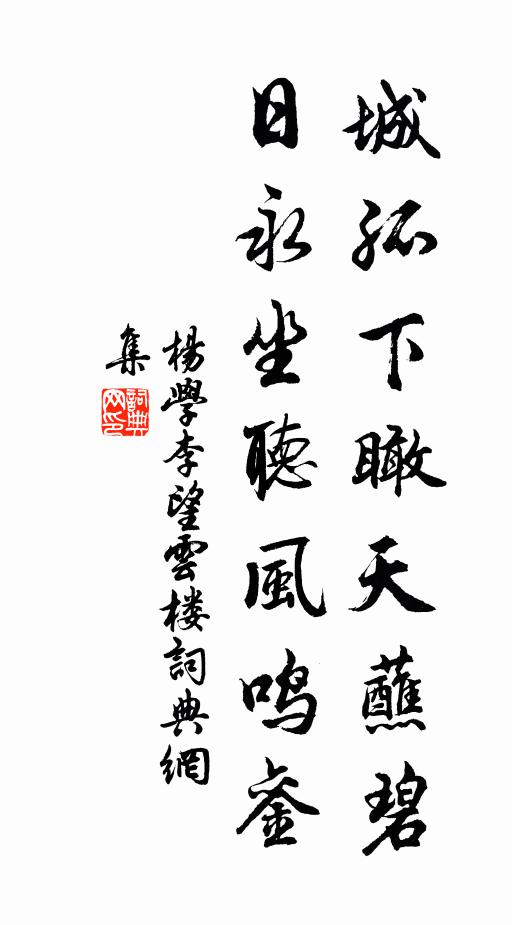 城孤下瞰天蘸碧
日永坐聽風鳴鑾
楊學李望雲楼詞典網
集
詞典
网印